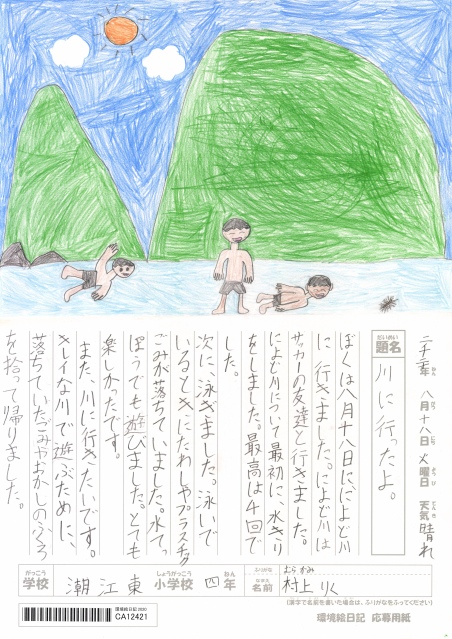 年 八月十八日 火曜日 天気 晴れ
ねん がつ にち ようび てんき
だいめい
題名 川に行ったよ。
ぼくは八月十八日に、によど川
に行きました。によど川は
サッカーの友達と行きました。
によど川について最初に、水きり
をしました。最高は4回で
した。
次に、泳ぎました。泳いで
いるときにたわしやプラスチック
ごみが落ちていました。水てっ
ぽうでも遊びました。とても
楽しかったです。
また、川に行きたいです。
キレイな川で遊ぶために、
落ちていたごみやおかしのふくろ
を拾って帰りました。
がっこう しょうがっこう ねん ふりがな むらかみ
学校 潮江東 小学校 四年 なまえ 名前 村上 りく
(漢字で名前を書いた場合は、ふりがなをふってください)
環境絵日記 2020
CA12421
環境絵日記 応募用紙